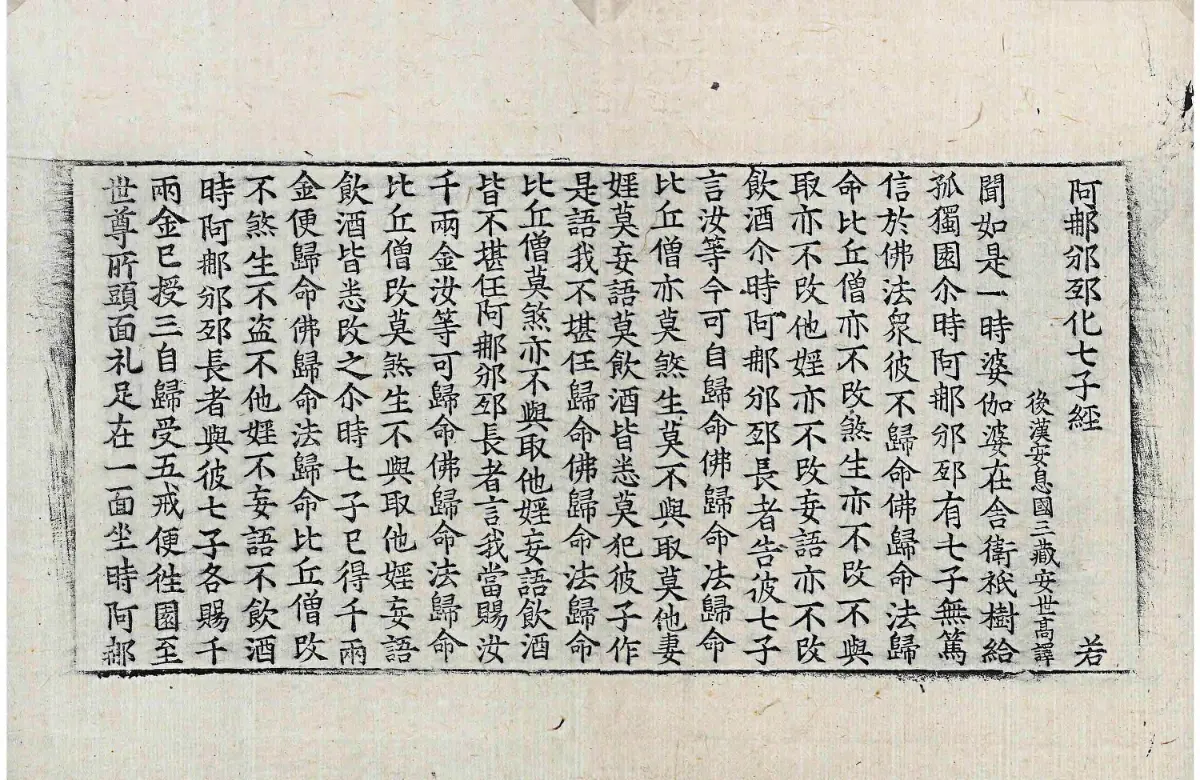 阿那邠邸化七子經 若
後漢安息國三藏安世高譯
聞如是一時婆伽婆在舍衛祇樹給
孤獨園尒時阿那邠邸有七子無篤
信於佛法衆彼不歸命佛歸命法歸
命比丘僧亦不改煞生亦不改不與
取亦不改他婬亦不改妄語亦不改
飲酒尒時阿那邠邸長者告彼七子
言汝等今可自歸命佛歸命法歸命
比丘僧亦莫煞生莫不與取莫他妻
婬莫妄語莫飲酒皆悉莫犯彼子作
是語我不堪任歸命佛歸命法歸命
比丘僧莫煞亦不與取他婬妄語飲酒
皆不堪任阿那邠邸長者言我當賜汝
千兩金汝等可歸命佛歸命法歸命
比丘僧改莫煞生不與取他婬妄語
飲酒皆悉改之尒時七子已得千兩
金便歸命佛歸命法歸命比丘僧改
不煞生不盗不他婬不妄語不飲酒
時阿那邠邸長者與彼七子各賜千
兩金已授三自歸受五戒便徃園至
世尊所頭面礼足在一面坐時阿那